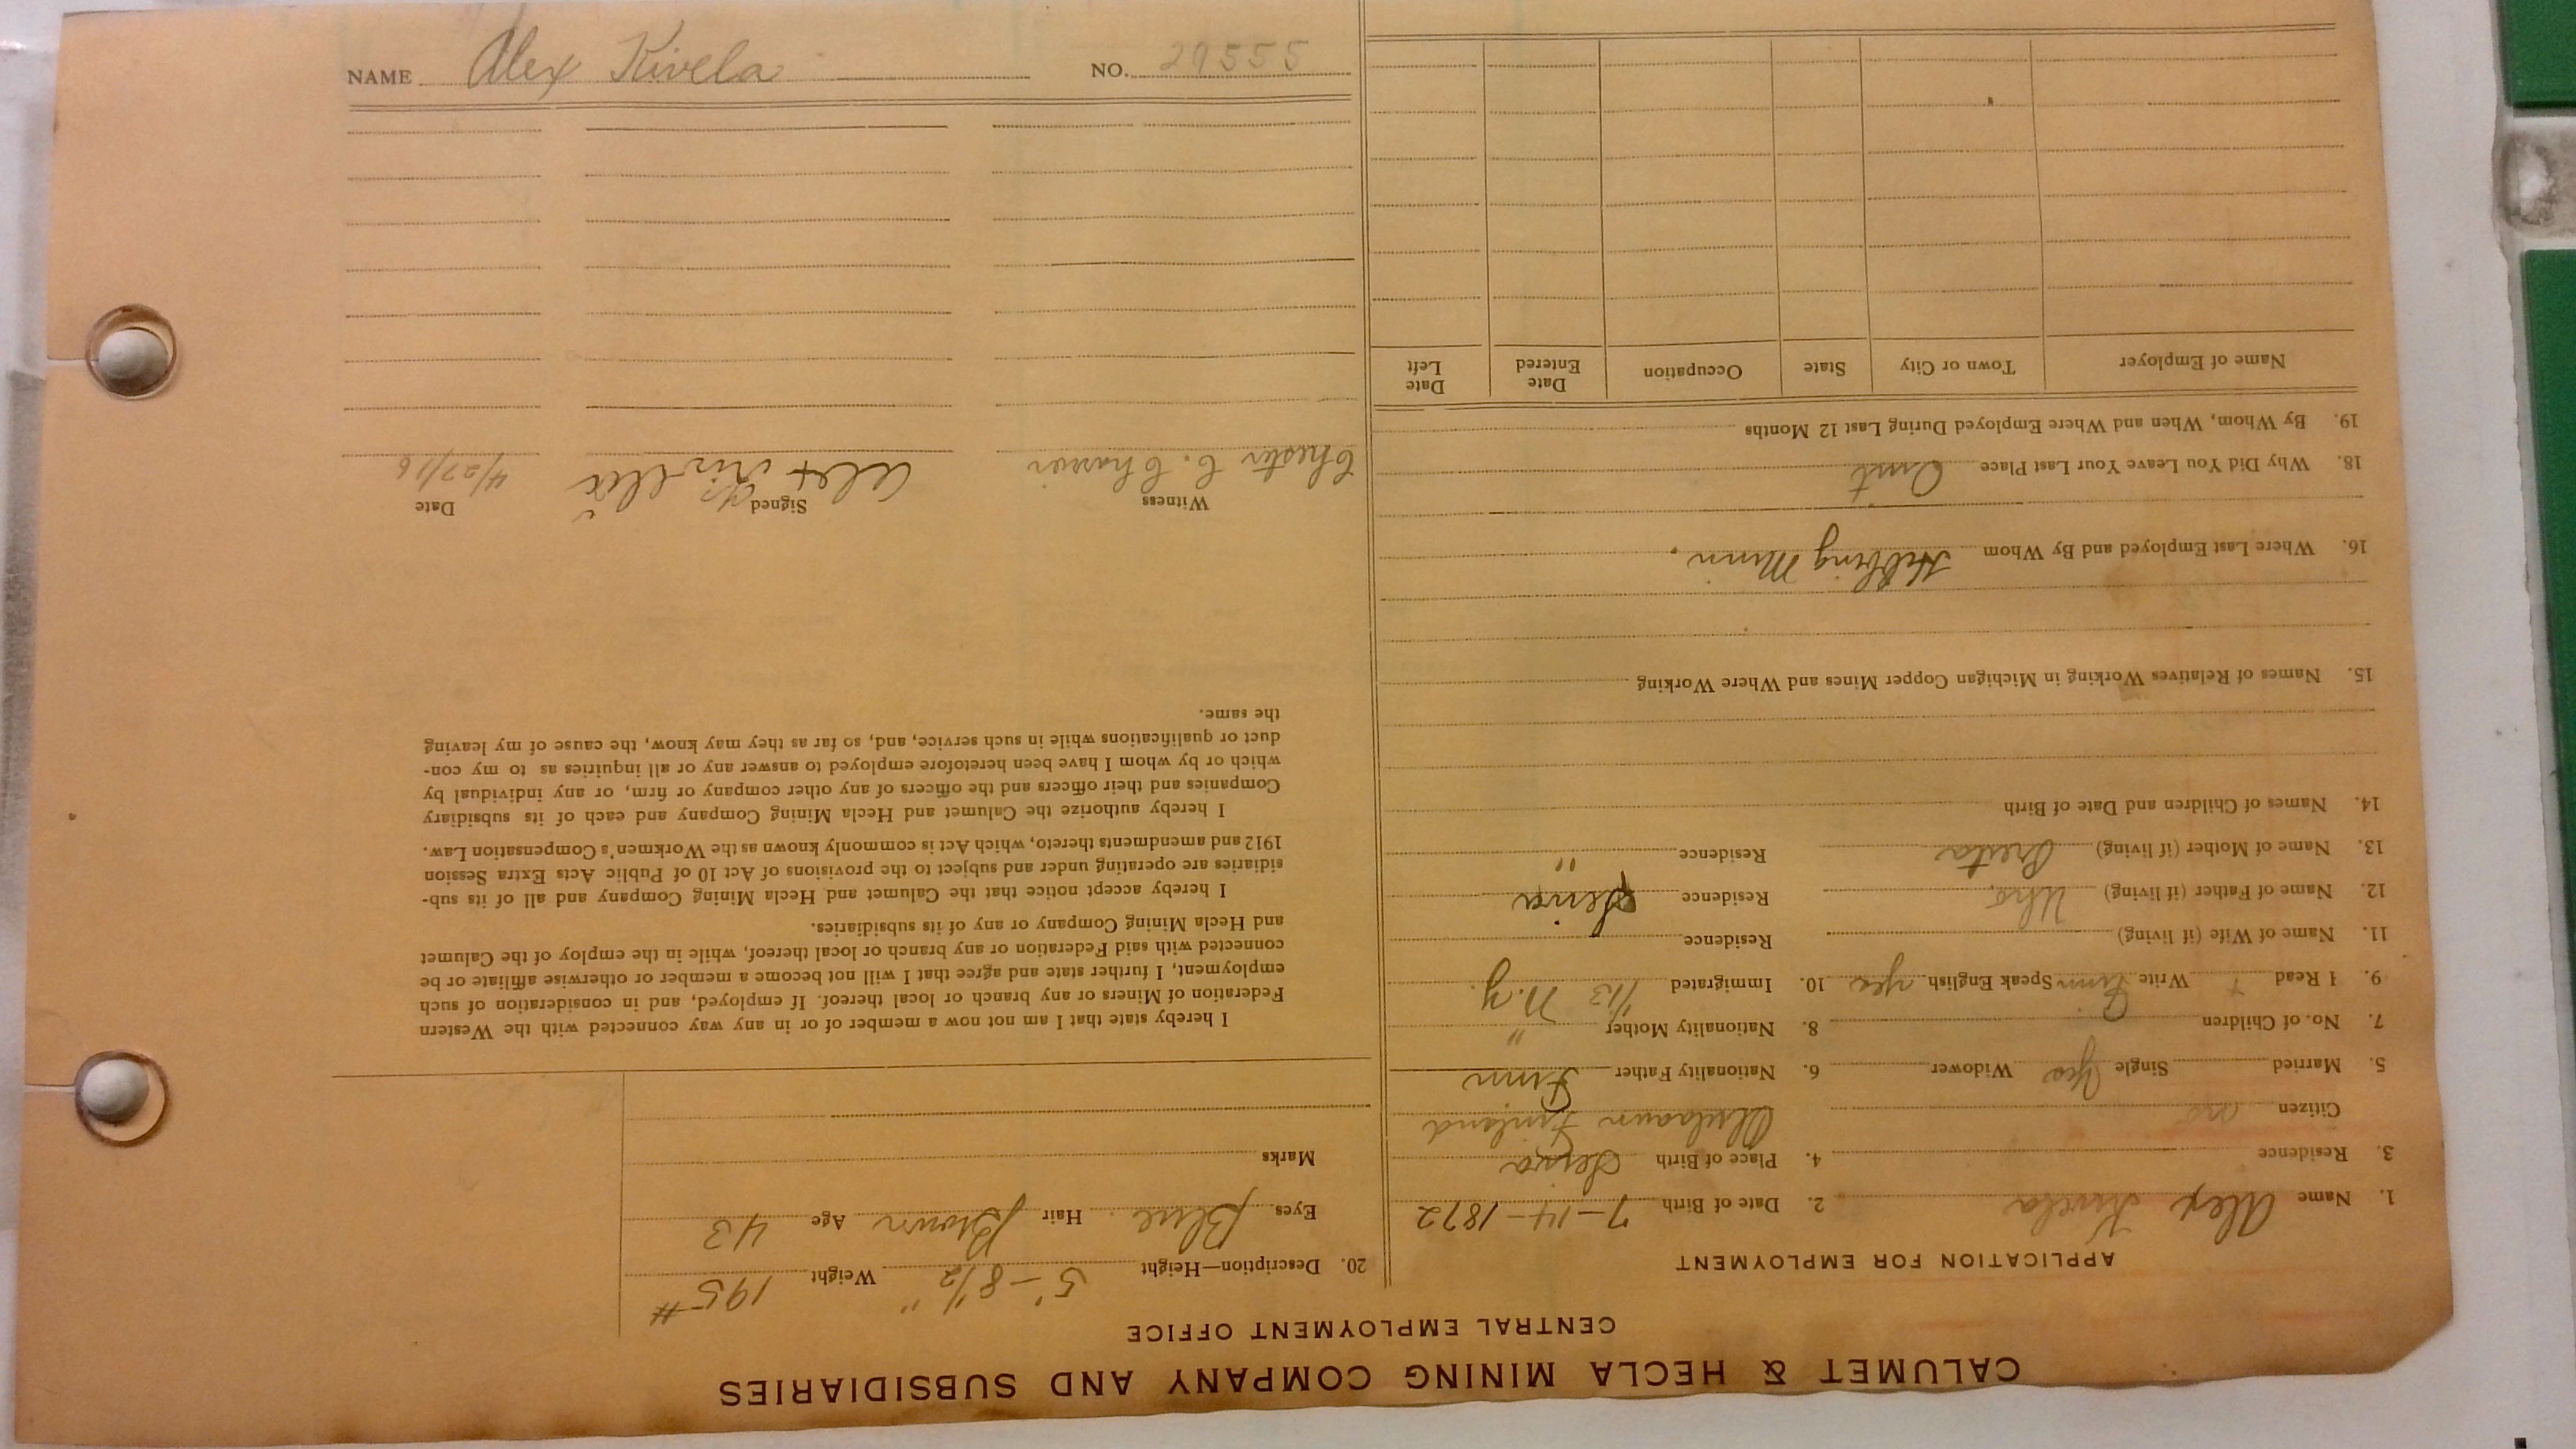 CALUMET & HECLA MINING COMPANY AND SUBSIDIARIES
CENTRAL EMPLOYMENT OFFICE
APPLICATION FOR EMPLOYMENT
1. Name Alex Kivela 2. Date of Birth 7-14-1872
3. Residence 4. Place of Birth
Citizen no Finland
5. Married Single Yes Widower 6. Nationality Father Finn
7. No. of Children 8. Nationality Mother "
9. I Read Write Finn Speak English yes 10. Immigrated 1/13 N.Y.
11. Name of Wife (if living) Residence
12. Name of Father (if living) Residence
13. Name of Mother (if living) Residence "
14. Names of Children and Date of Birth
15. Names of Relatives Working in Michigan Copper Mines and Where Working
16. Where Last Employed and By Whom Hibbing Minn.
18. Why Did You Leave Your Last Place Quit
19. By Whom, When and Where Employed During Last 12 Months
Name of Employer Town or City State Occupation Date Entered Date Left
20. Description—Height 5'-8 1/2" Weight 195 #
Eyes Blue Hair Brown Age 43
Marks
I hereby state that I am not now a member of or in any way connected with the Western
Federation of Miners or any branch or local thereof. If employed, and in consideration of such
employment, I further state and agree that I will not become a member or otherwise affiliate or be
connected with said Federation or any branch or local thereof, while in the employ of the Calumet
and Hecla Mining Company or any of its subsidiaries.
I hereby accept notice that the Calumet and Hecla Mining Company and all of its sub-
sidiaries are operating under and subject to the provisions of Act 10 of Public Acts Extra Session
1912 and amendments thereto, which Act is commonly known as the Workmen's Compensation Law.
I hereby authorize the Calumet and Hecla Mining Company and each of its subsidiary
Companies and their officers and the officers of any other company or firm, or any individual by
which or by whom I have been heretofore employed to answer any or all inquiries as to my con-
duct or qualifications while in such service, and, so far as they may know, the cause of my leaving
the same.
Witness Signed Date
Chester C. Alex 4/27/16
NAME Alex Kivela NO. 29555